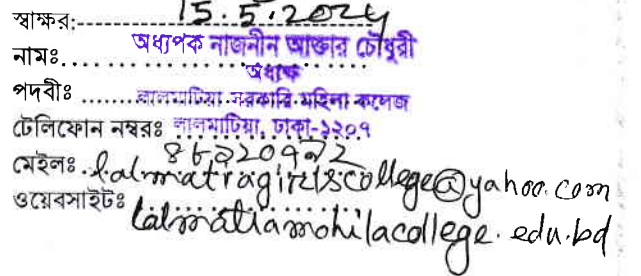 স্বাক্ষর:---------- 15.5.2024
নামঃ.......... অধ্যাপক নাজনীন আক্তার চৌধুরী
অধ্যক্ষ
পদবীঃ .......... লালমাটিয়া সরকারি মহিলা কলেজ
টেলিফোন নম্বরঃ লালমাটিয়া, ঢাকা-১২০৭
মেইলঃ. lalmatiagirlscollege@yahoo.com
ওয়েবসাইটঃ lalmatiamohilacollege.edu.bd